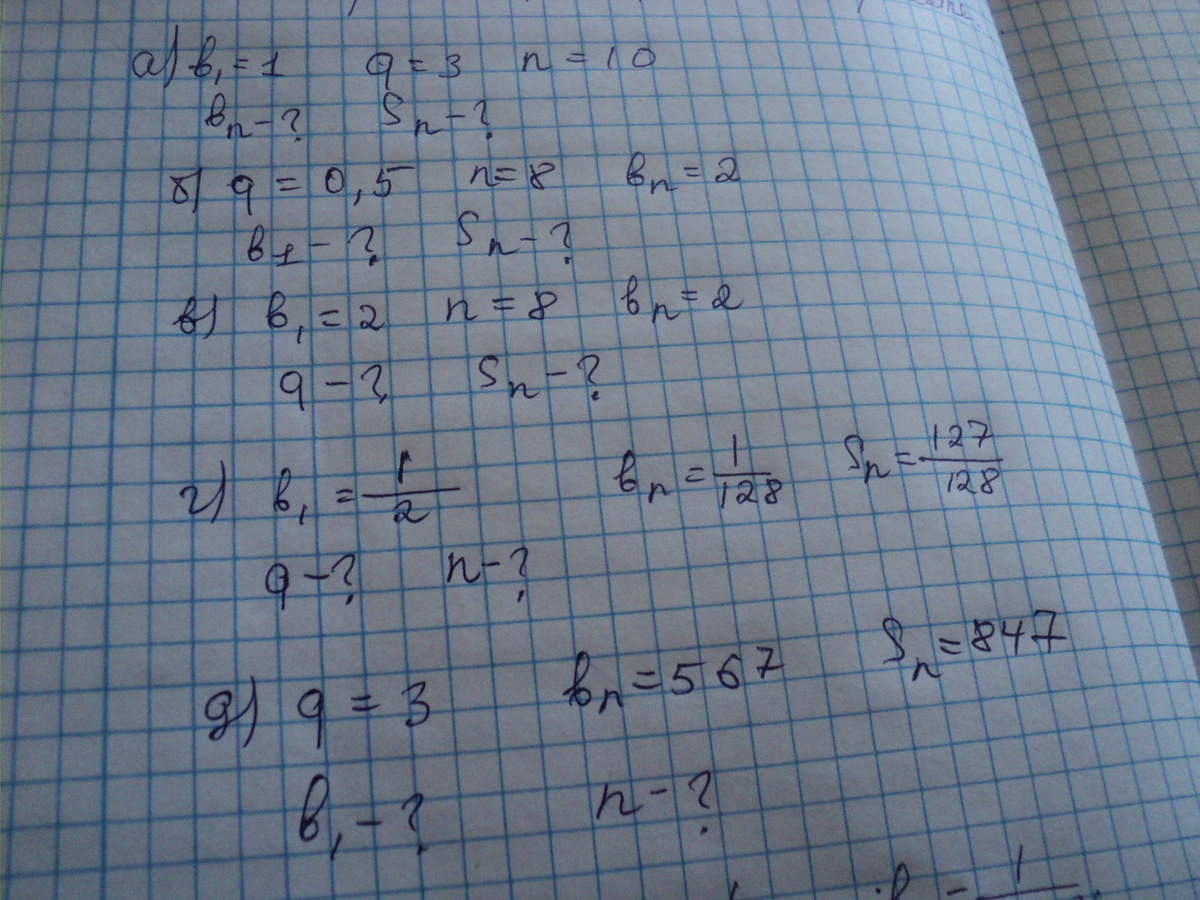 а) в₁ = 1 q = 3 n = 10
вₙ - ? Sₙ - ?
б) q = 0,5 n = 8 вₙ = 2
в₁ - ? Sₙ - ?
в) в₁ = 2 n = 8 вₙ = 2
q - ? Sₙ - ?
г) в₁ = 1/2 вₙ = 1/128 Sₙ = 127/128
q - ? n - ?
д) q = 3 вₙ = 567 Sₙ = 847
в₁ - ? n - ?